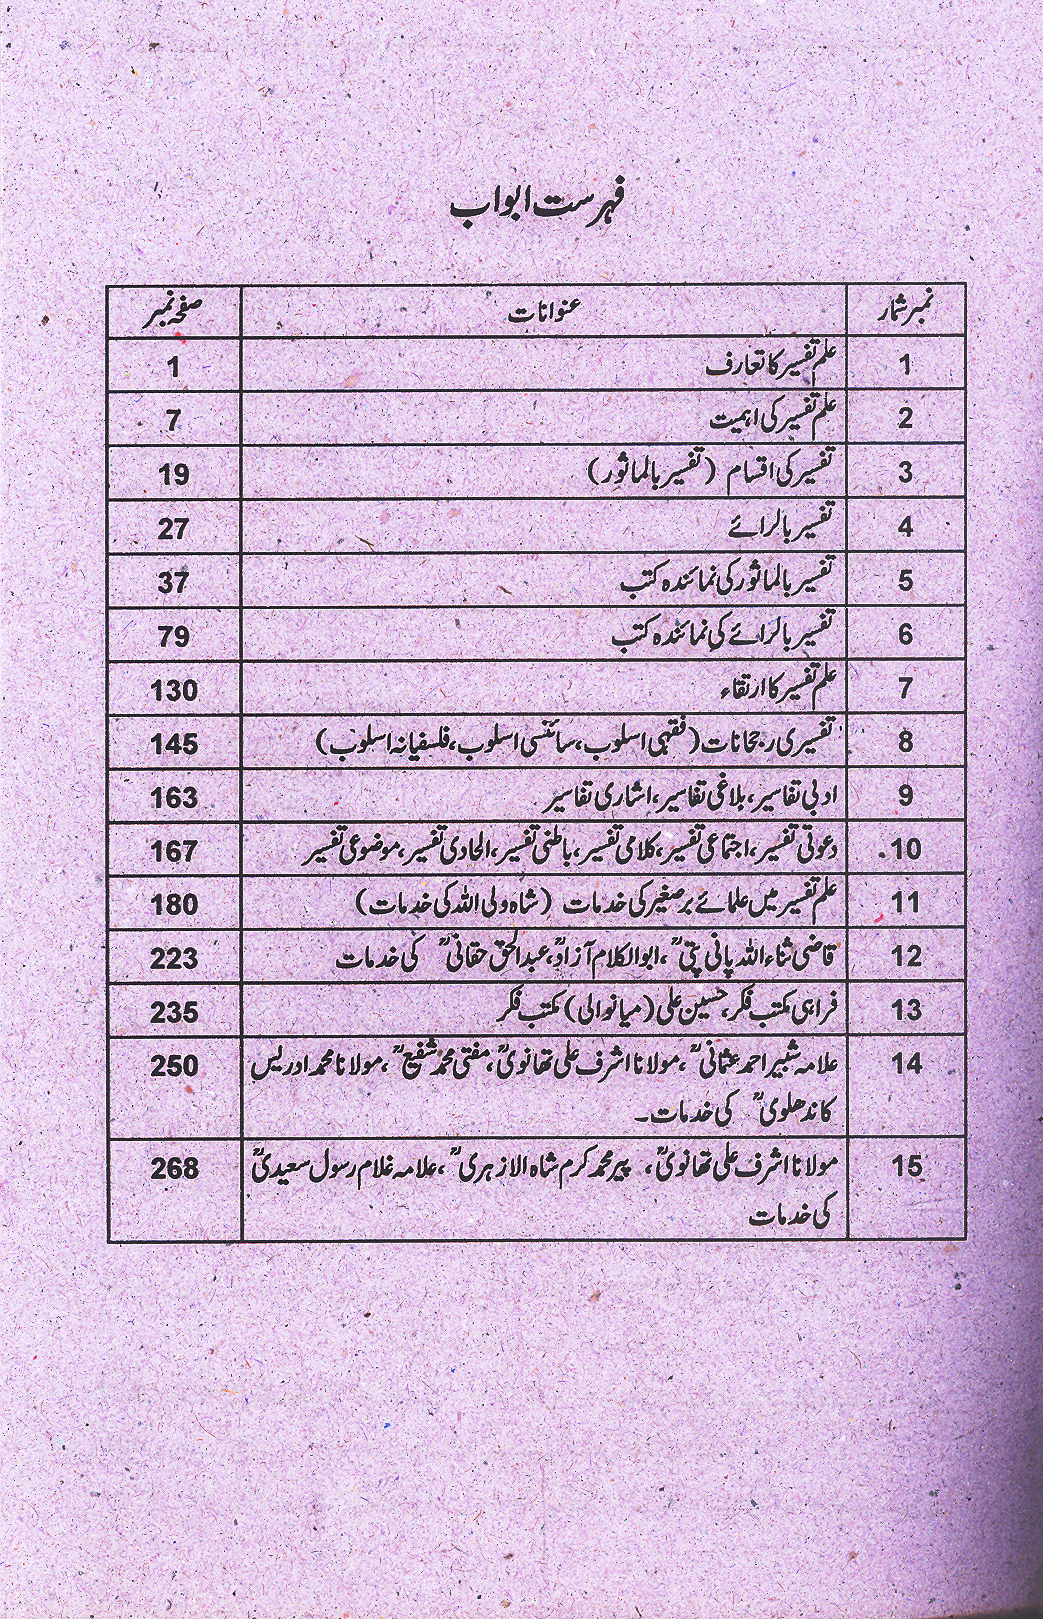 فہرست ابواب
نمبر شمار عنوانات صفحہ نمبر
1 علم تفسیر کا تعارف 1
2 علم تفسیر کی اہمیت 7
3 تفسیر کی اقسام (تفسیر بالماثور) 19
4 تفسیر بالرائے 27
5 تفسیر بالماثور کی نمائندہ کتب 37
6 تفسیر بالرائے کی نمائندہ کتب 79
7 علم تفسیر کا ارتقاء 130
8 تفسیری رجحانات (فقہی اسلوب، سائنسی اسلوب، فلسفیانہ اسلوب) 145
9 ادبی تفاسیر، بلاغی تفاسیر، اشاری تفاسیر 163
10 دعوتی تفسیر، اجتماعی تفسیر، کلامی تفسیر، باطنی تفسیر، الحادی تفسیر، موضوعی تفسیر 167
11 علم تفسیر میں علمائے برصغیر کی خدمات (شاہ ولی اللہ کی خدمات) 180
12 قاضی ثناء اللہ پانی پتیؒ، ابوالکلام آزادؒ، عبدالحق حقانیؒ کی خدمات 223
13 فراہی مکتب فکر، حسین علی (میانوالی) مکتب فکر 235
14 علامہ شبیر احمد عثمانیؒ، مولانا اشرف علی تھانویؒ، مفتی محمد شفیعؒ، مولانا محمد ادریس 250
کاندھلویؒ کی خدمات۔
15 مولانا اشرف علی تھانویؒ، پیر محمد کرم شاہ الازہریؒ، علامہ غلام رسول سعیدیؒ 268
کی خدمات